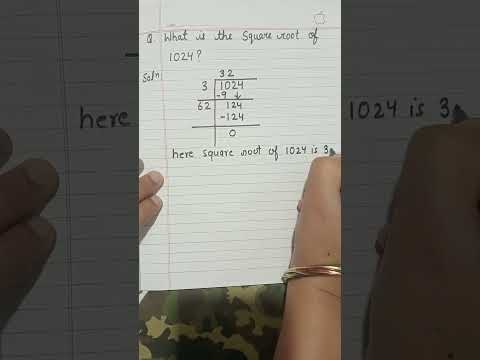 Q. What is the Square root of
1024?
Soln
32
3 1024
-9 ↓
62 124
-124
0
here square root of 1024 is 3